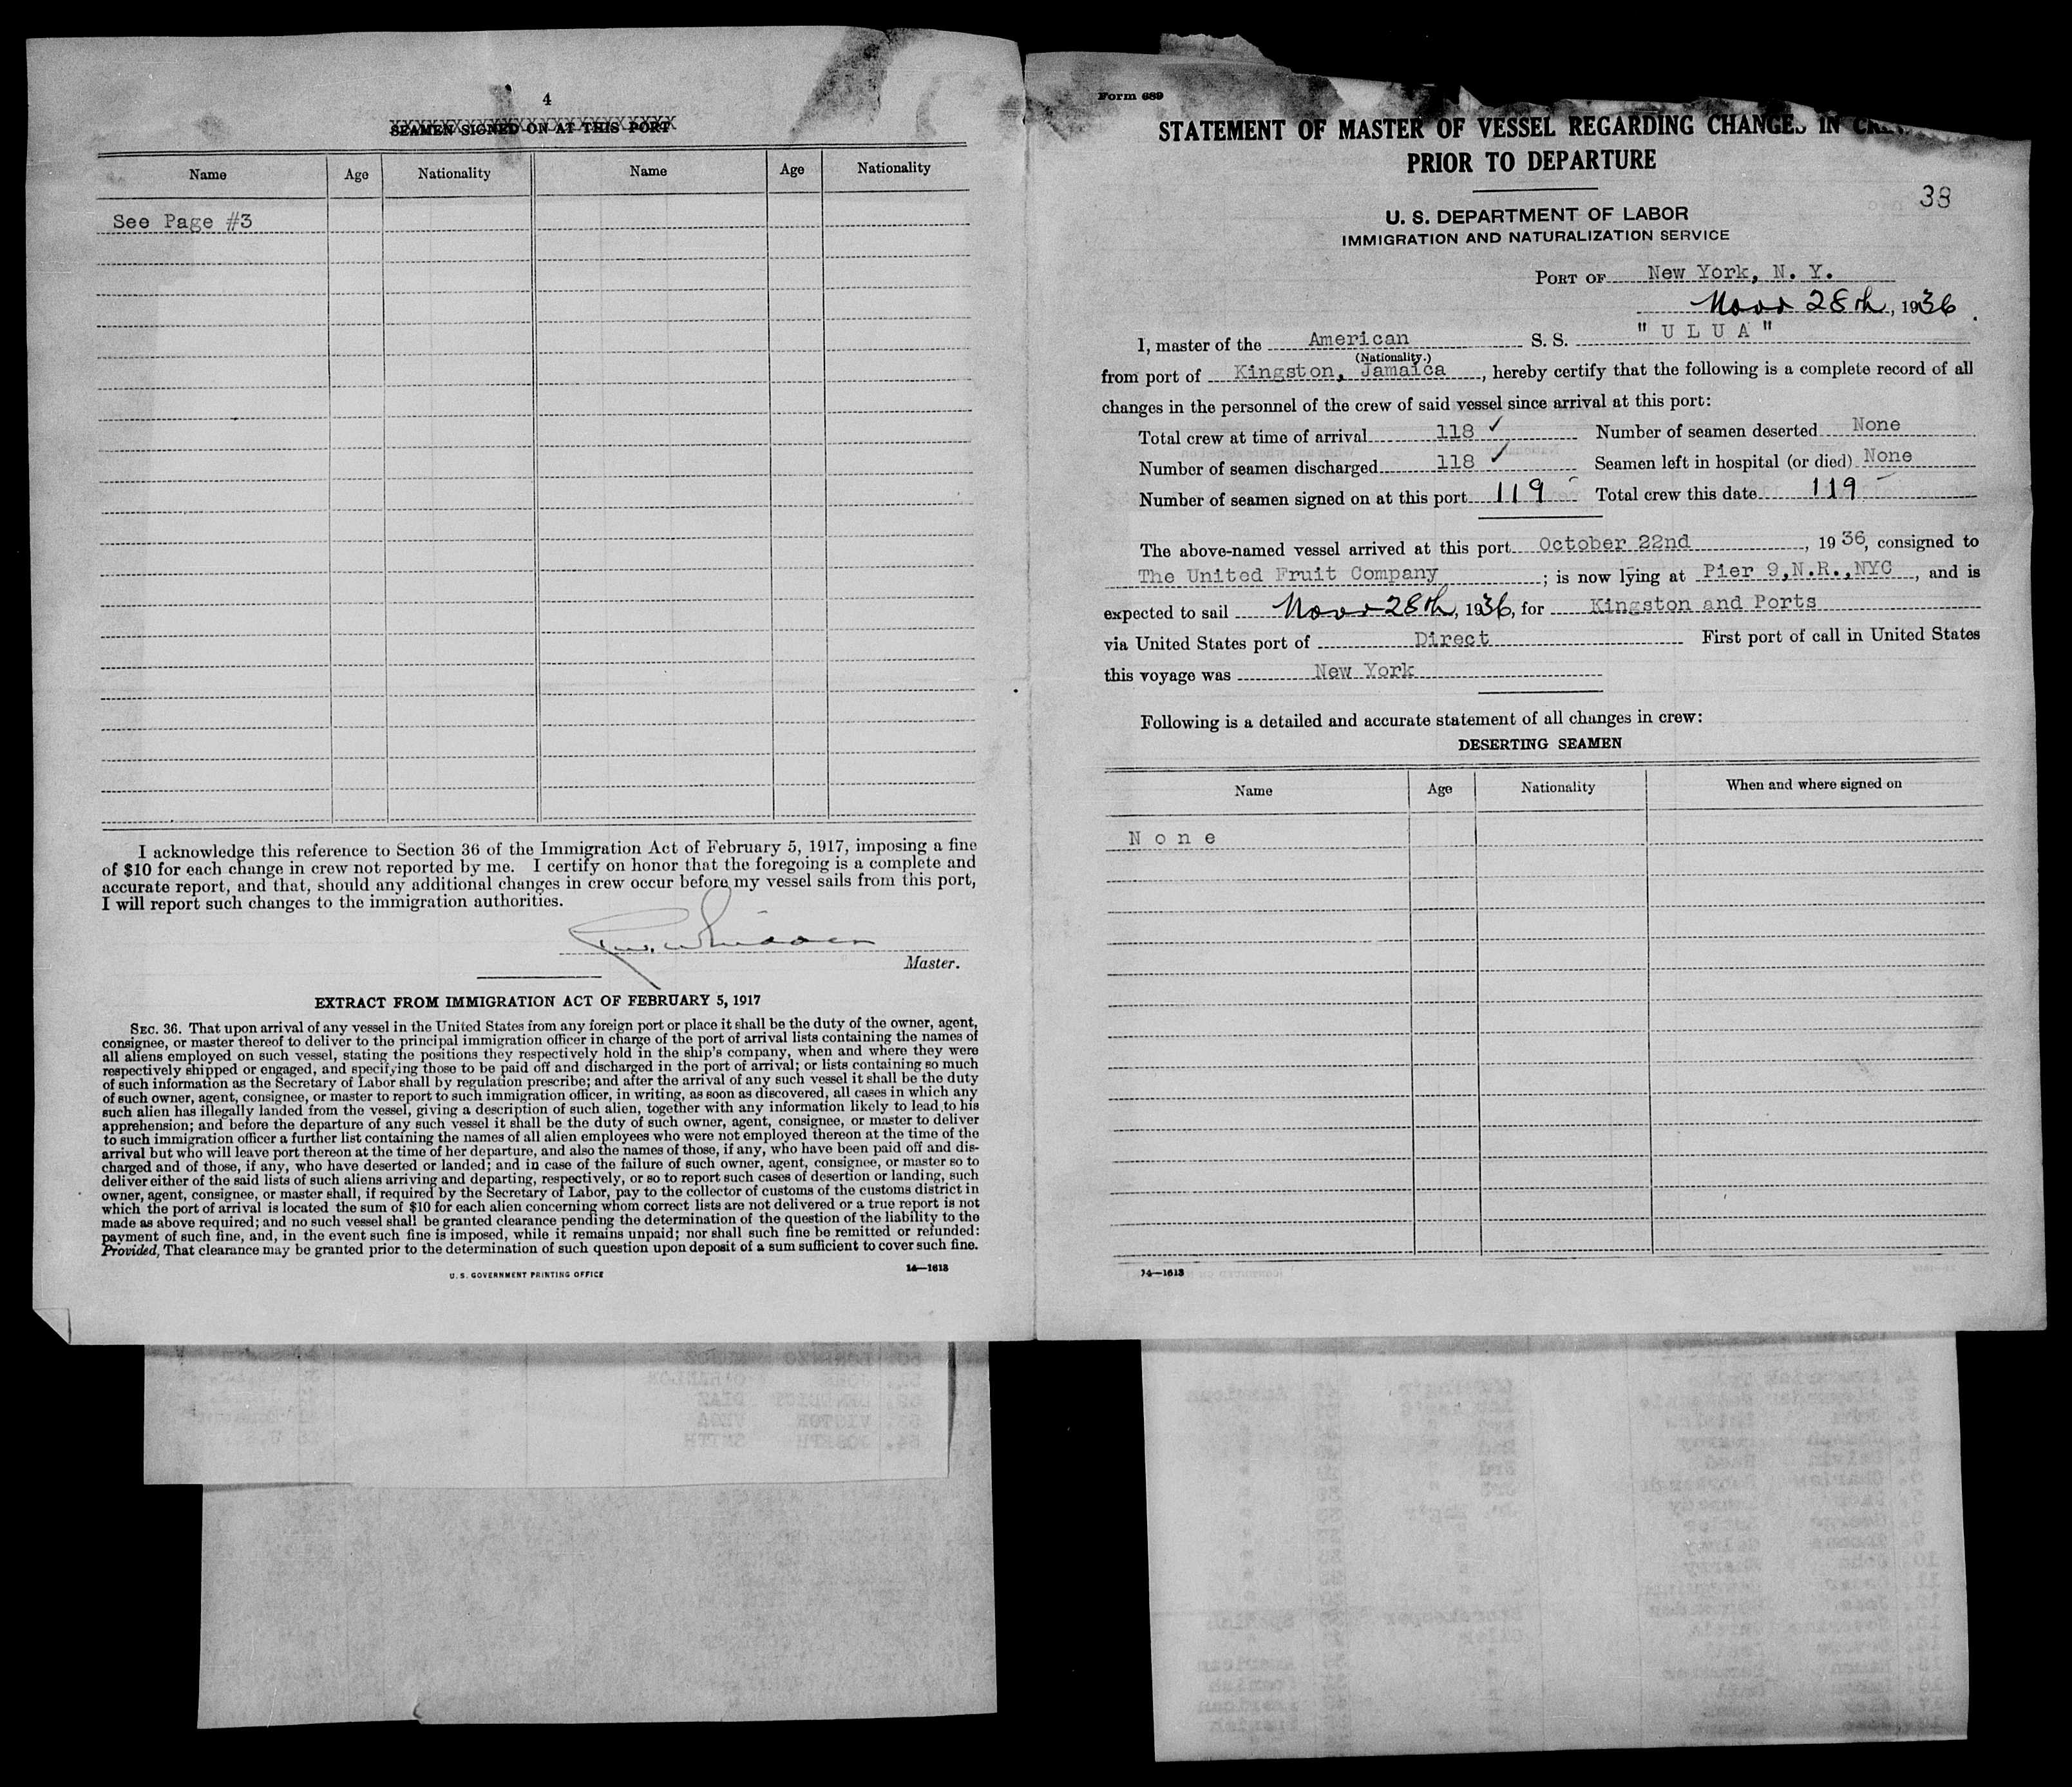 4
SEAMEN SIGNED ON AT THIS PORT
Name Age Nationality Name Age Nationality
See Page #3
I acknowledge this reference to Section 36 of the Immigration Act of February 5, 1917, imposing a fine
of $10 for each change in crew not reported by me. I certify on honor that the foregoing is a complete and
accurate report, and that, should any additional changes in crew occur before my vessel sails from this port,
I will report such changes to the immigration authorities.
Master.
EXTRACT FROM IMMIGRATION ACT OF FEBRUARY 5, 1917
SEC. 36. That upon arrival of any vessel in the United States from any foreign port or place it shall be the duty of the owner, agent,
consignee, or master thereof to deliver to the principal immigration officer in charge of the port of arrival lists containing the names of
all aliens employed on such vessel, stating the positions they respectively hold in the ship's company, when and where they were
respectively shipped or engaged, and specifying those to be paid off and discharged in the port of arrival; or lists containing so much
of such information as the Secretary of Labor shall by regulation prescribe; and after the arrival of any such vessel it shall be the duty
of such owner, agent, consignee, or master to report to such immigration officer, in writing, as soon as discovered, all cases in which any
such alien has illegally landed from the vessel, giving a description of such alien, together with any information likely to lead to his
apprehension; and before the departure of any such vessel it shall be the duty of such owner, agent, consignee, or master to deliver
to such immigration officer a further list containing the names of all alien employees who were not employed thereon at the time of the
arrival but who will leave port thereon at the time of her departure, and also the names of those, if any, who have been paid off and dis-
charged and of those, if any, who have deserted or landed; and in case of the failure of such owner, agent, consignee, or master so to
deliver either of the said lists of such aliens arriving and departing, respectively, or so to report such cases of desertion or landing, such
owner, agent, consignee, or master shall, if required by the Secretary of Labor, pay to the collector of customs of the customs district in
which the port of arrival is located the sum of $10 for each alien concerning whom correct lists are not delivered or a true report is not
made as above required; and no such vessel shall be granted clearance pending the determination of the question of the liability to the
payment of such fine, and, in the event such fine is imposed, while it remains unpaid; nor shall such fine be remitted or refunded:
Provided, That clearance may be granted prior to the determination of such question upon deposit of a sum sufficient to cover such fine.
U. S. GOVERNMENT PRINTING OFFICE 14—1613
Form 689
STATEMENT OF MASTER OF VESSEL REGARDING CHANGES IN
PRIOR TO DEPARTURE
38
U. S. DEPARTMENT OF LABOR
IMMIGRATION AND NATURALIZATION SERVICE
PORT OF New York, N. Y.
Nov 28th, 1936.
I, master of the American S. S. "ULUA"
(Nationality.)
from port of Kingston, Jamaica, hereby certify that the following is a complete record of all
changes in the personnel of the crew of said vessel since arrival at this port:
Total crew at time of arrival 118 ✓ Number of seamen deserted None
Number of seamen discharged 118 ✓ Seamen left in hospital (or died) None
Number of seamen signed on at this port 119 Total crew this date 119
The above-named vessel arrived at this port October 22nd, 1936, consigned to
The United Fruit Company; is now lying at Pier 9,N.R.,NYC, and is
expected to sail Nov 28th, 1936, for Kingston and Ports
via United States port of Direct First port of call in United States
this voyage was New York
Following is a detailed and accurate statement of all changes in crew:
DESERTING SEAMEN
Name Age Nationality When and where signed on
None
14—1613